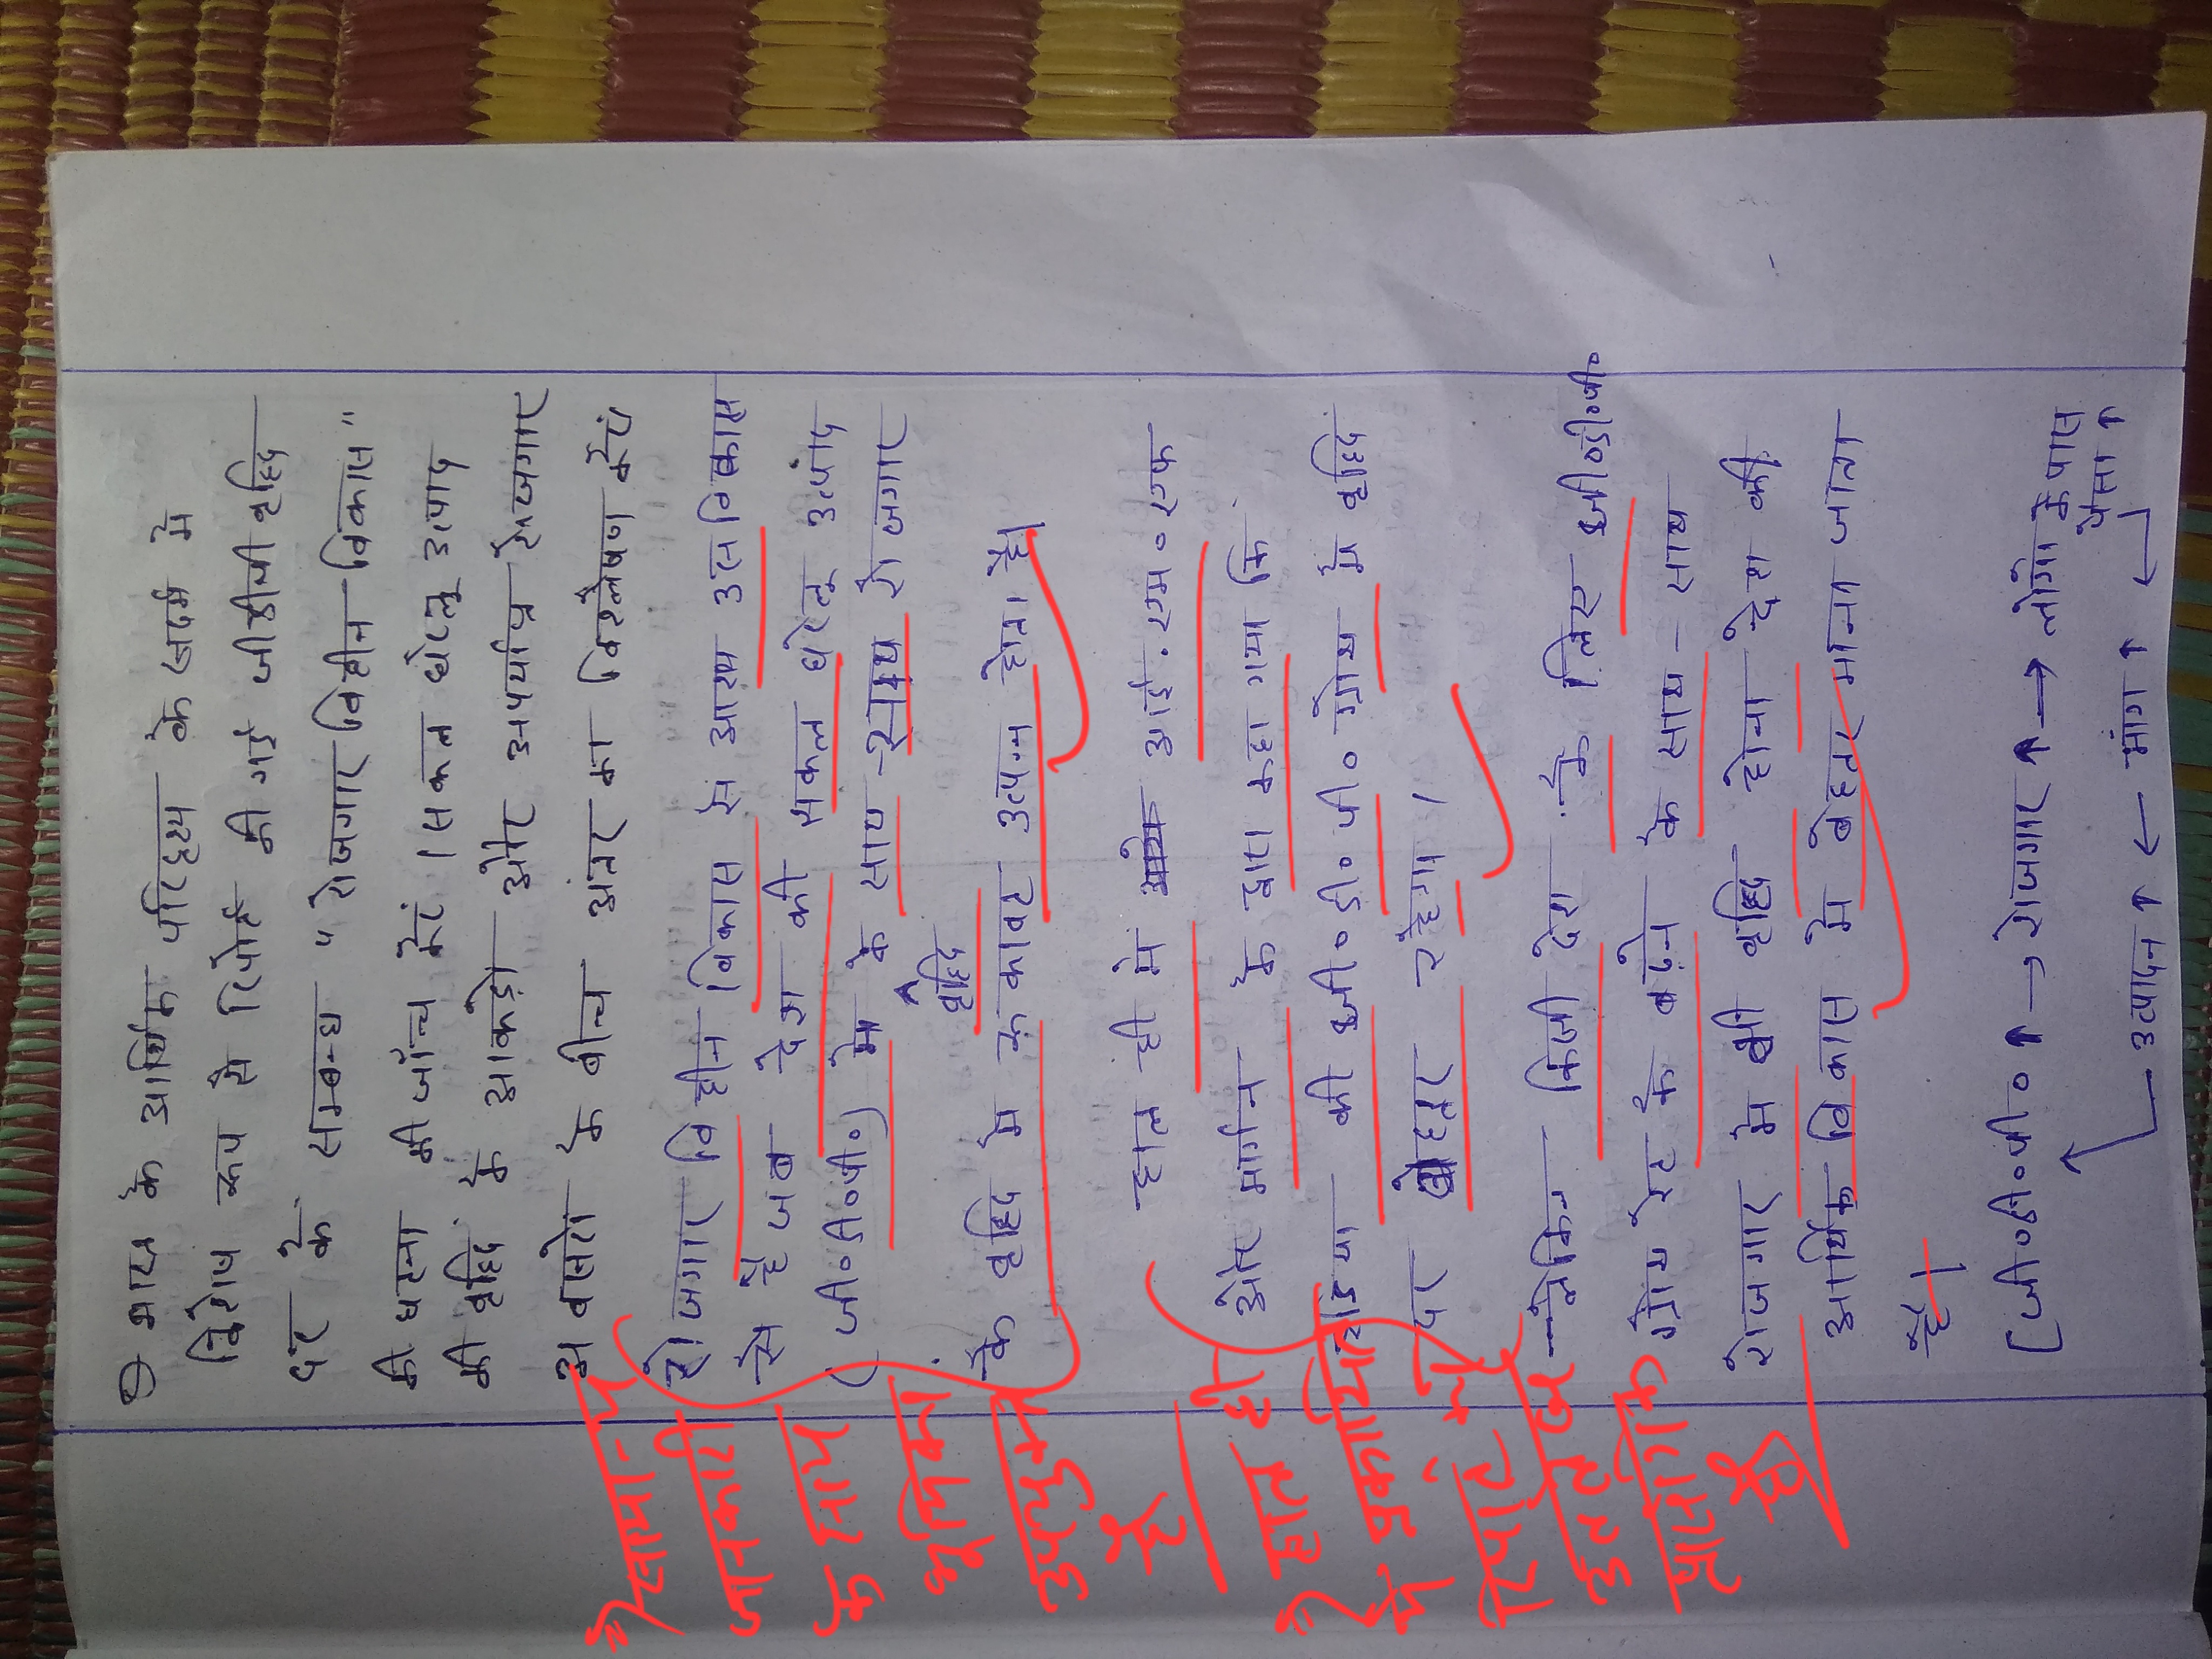 ① भारत के आर्थिक परिदृश्य के संदर्भ में
विशेष रूप से रिपोर्ट की गई जीडीपी वृद्धि
दर के सम्बन्ध "रोजगार विहीन विकास"
की घटना की जाँच करें। सकल घरेलू उत्पाद
की वृद्धि के आकड़ो और अपर्याप्त रोजगार
अवसरो के बीच अंतर का विश्लेषण करें
रोजगार विहीन विकास से आशय उस विकास
से है जब देश की सकल घरेलू उत्पाद
(जी०डी०पी०) में के साथ-साथ रोजगार
वृद्धि
के वृद्धि में रूकावट उत्पन्न होता है।
हाल ही में आई.एम०एफ
और मार्गन के द्वारा कहा गया कि
इंडिया की जी०डी०पी० ग्रोथ में वृद्धि
पर बेहतर रहेगा।
लेकिन किसी देश के लिए जी०डी०पी०
ग्रोथ रेट के बढ़ने के साथ-साथ
रोजगार में भी वृद्धि होना देश की
आर्थिक विकास में बेहतर माना जाता
है।
[जी०डी०पी०↑ → रोजगार↑ → लोगो के पास
पैसा↑
उत्पादन↑ ← मांग↑ ←
सामान्य
जानकारी
के साथ
भूमिका
उपयुक्त
है
हाल ही
में
रिपोर्ट